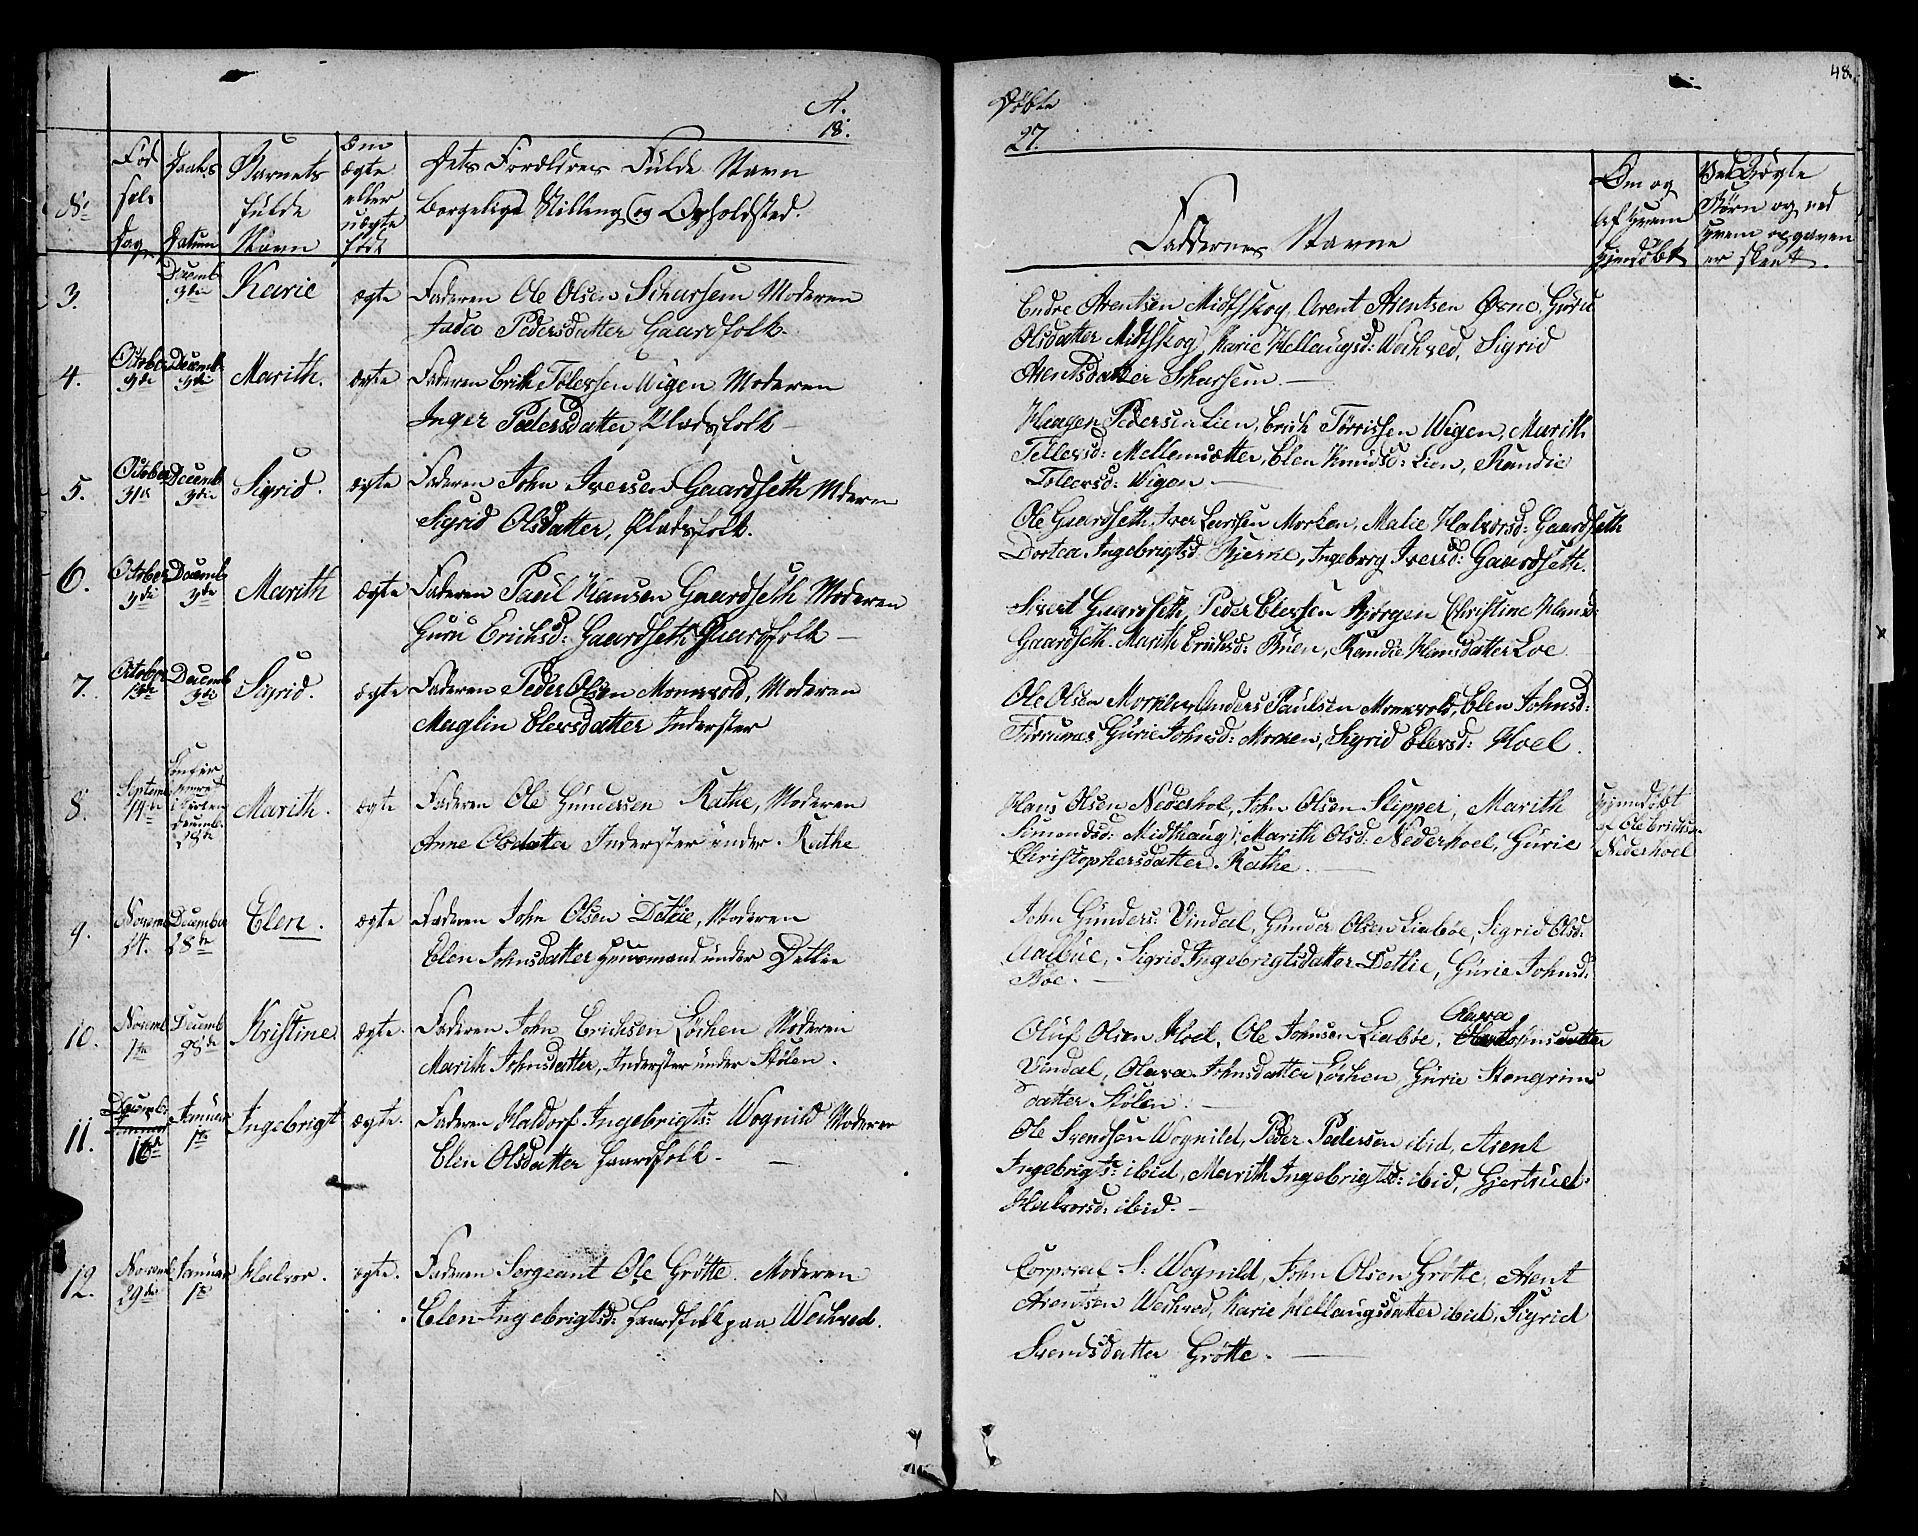 48.
A. Døbte
18. 27.
No Fødsels Dag Daabs Datum Barnets fulde Navn Om ægte eller uægte født Dets Forældres Fulde Navn borgelige Stilling og Opholdsted. Faddernes Navne Om og af hvem Hjemdøbt Ved Uægte Børn og ved hvem opgaven er skeet.
3. Decemb: 3die Karie ægte Faderen Ole Olsen Scharsem Moderen
Pedersdatter Gaardfolk.
Endre Arentsen Midtskog, Arent Arentsen Øsne, Guru
Olsdatter Midtskog, Karie Hellaugsd: Weihred, Sigrid
Arentsdatter Scharsem. —
4. October Decemb: 3die Marith. ægte Faderen Erich Tølefsen Wigen Moderen
Inger Pedersdatter Pladsfolk —
Haagen Pedersen Lien, Erich Tørrissen Wigen, Marith
Tollevsd: Mellemsætter, Elen Knudsd: Lien, Randie
Tollevsd: Wigen —
5. October Decemb 3die Sigrid. ægte Faderen John Iversen Gaardseth Moderen
Sigrid Olsdatter, Pladsfolk.
Ole Gaardseth, Iver Larsen Morken, Malie Halvorsd: Gaardseth
Dortea Ingebrigtsd: Bjerke, Ingeborg Iversd: Gaardseth.
6. October 3die Decemb 3die Marith ægte Faderen Paul Hansen Gaardseth Moderen
Guru Erichsd: Gaardseth Gaardfolk —
Sivert Gaardseth, Peder Elefsen Bjørgen Christine Hansd:
Gaardseth. Marith Erichsd: Buen, Randie Hansdatter Loe
7. October 13de Decemb 3die Sigrid. ægte Faderen Peder Olsen Monsvold, Moderen
Maglin Elevsdatter Inderster
Ole Olsen Morken, Anders Paulsen Monsvold, Elen Johnsd:
Furrunes Gurie Johnsd: Morken, Sigrid Elevsd: Hoel.
8. Septemb 14de i Kirken Decemb. 28de Marith. ægte Faderen Ole Gundersen Rathe, Moderen
Anne Olsdatter Inderster under Rathe
Hans Olsen Nederhoel, John Olsen Slipper, Marith
Simendsd: Midthaug, Marith Olsd: Nederhoel, Gurie
Christophersdatter Rathe. —
Hjemdøbt
af Ole Erichsen
Nederhoel
9. Novemb 24. December 28de Elen. ægte Faderen John Olsen Detlie, Moderen
Elen Johnsdatter Huusmand under Detlie
John Gunders: Vindal, Gunder Olsen Liabøe, Sigrid Olsd:
Aalbue, Sigrid Ingebrigtsdatter Detlie, Gurie Johnsd:
Boe. —
10. Novemb: 1te Decemb 28de Kristine ægte. Faderen John Erichsen Løchen Moderen
Marith Johnsdatter, Inderster under Stølen.
Oluf Olsen Hoel, Ole Johnsen Liabøe, Olava Johnsdatter
Vindal, Olava Johnsdatter Løchen Gurie Stengrims
datter Stølen. —
11. Decemb: 16de Januar 1te Ingebrigt ægte. Faderen Haldor Ingebrigts: Wognild Moderen
Elen Olsdatter Gaardfolk. —
Ole Svendsen Wognild, Peder Pedersen ibid, Arent
Ingebrigts: ibid, Marith Ingebrigtsd: ibid, Gjertrued
Halvorsd: ibid. —
12. Novemb 29de Januar 1te Halvor. ægte. Faderen Sergeant Ole Grøtte. Moderen
Elen Ingebrigtsd: Gaardfolk paa Weihred.
Corporal S: Wognild, John Olsen Grøtte, Arent
Arentsen Weihred, Karie Hellaugsdatter ibid, Sigrid
Svendsdatter Grøtte. —